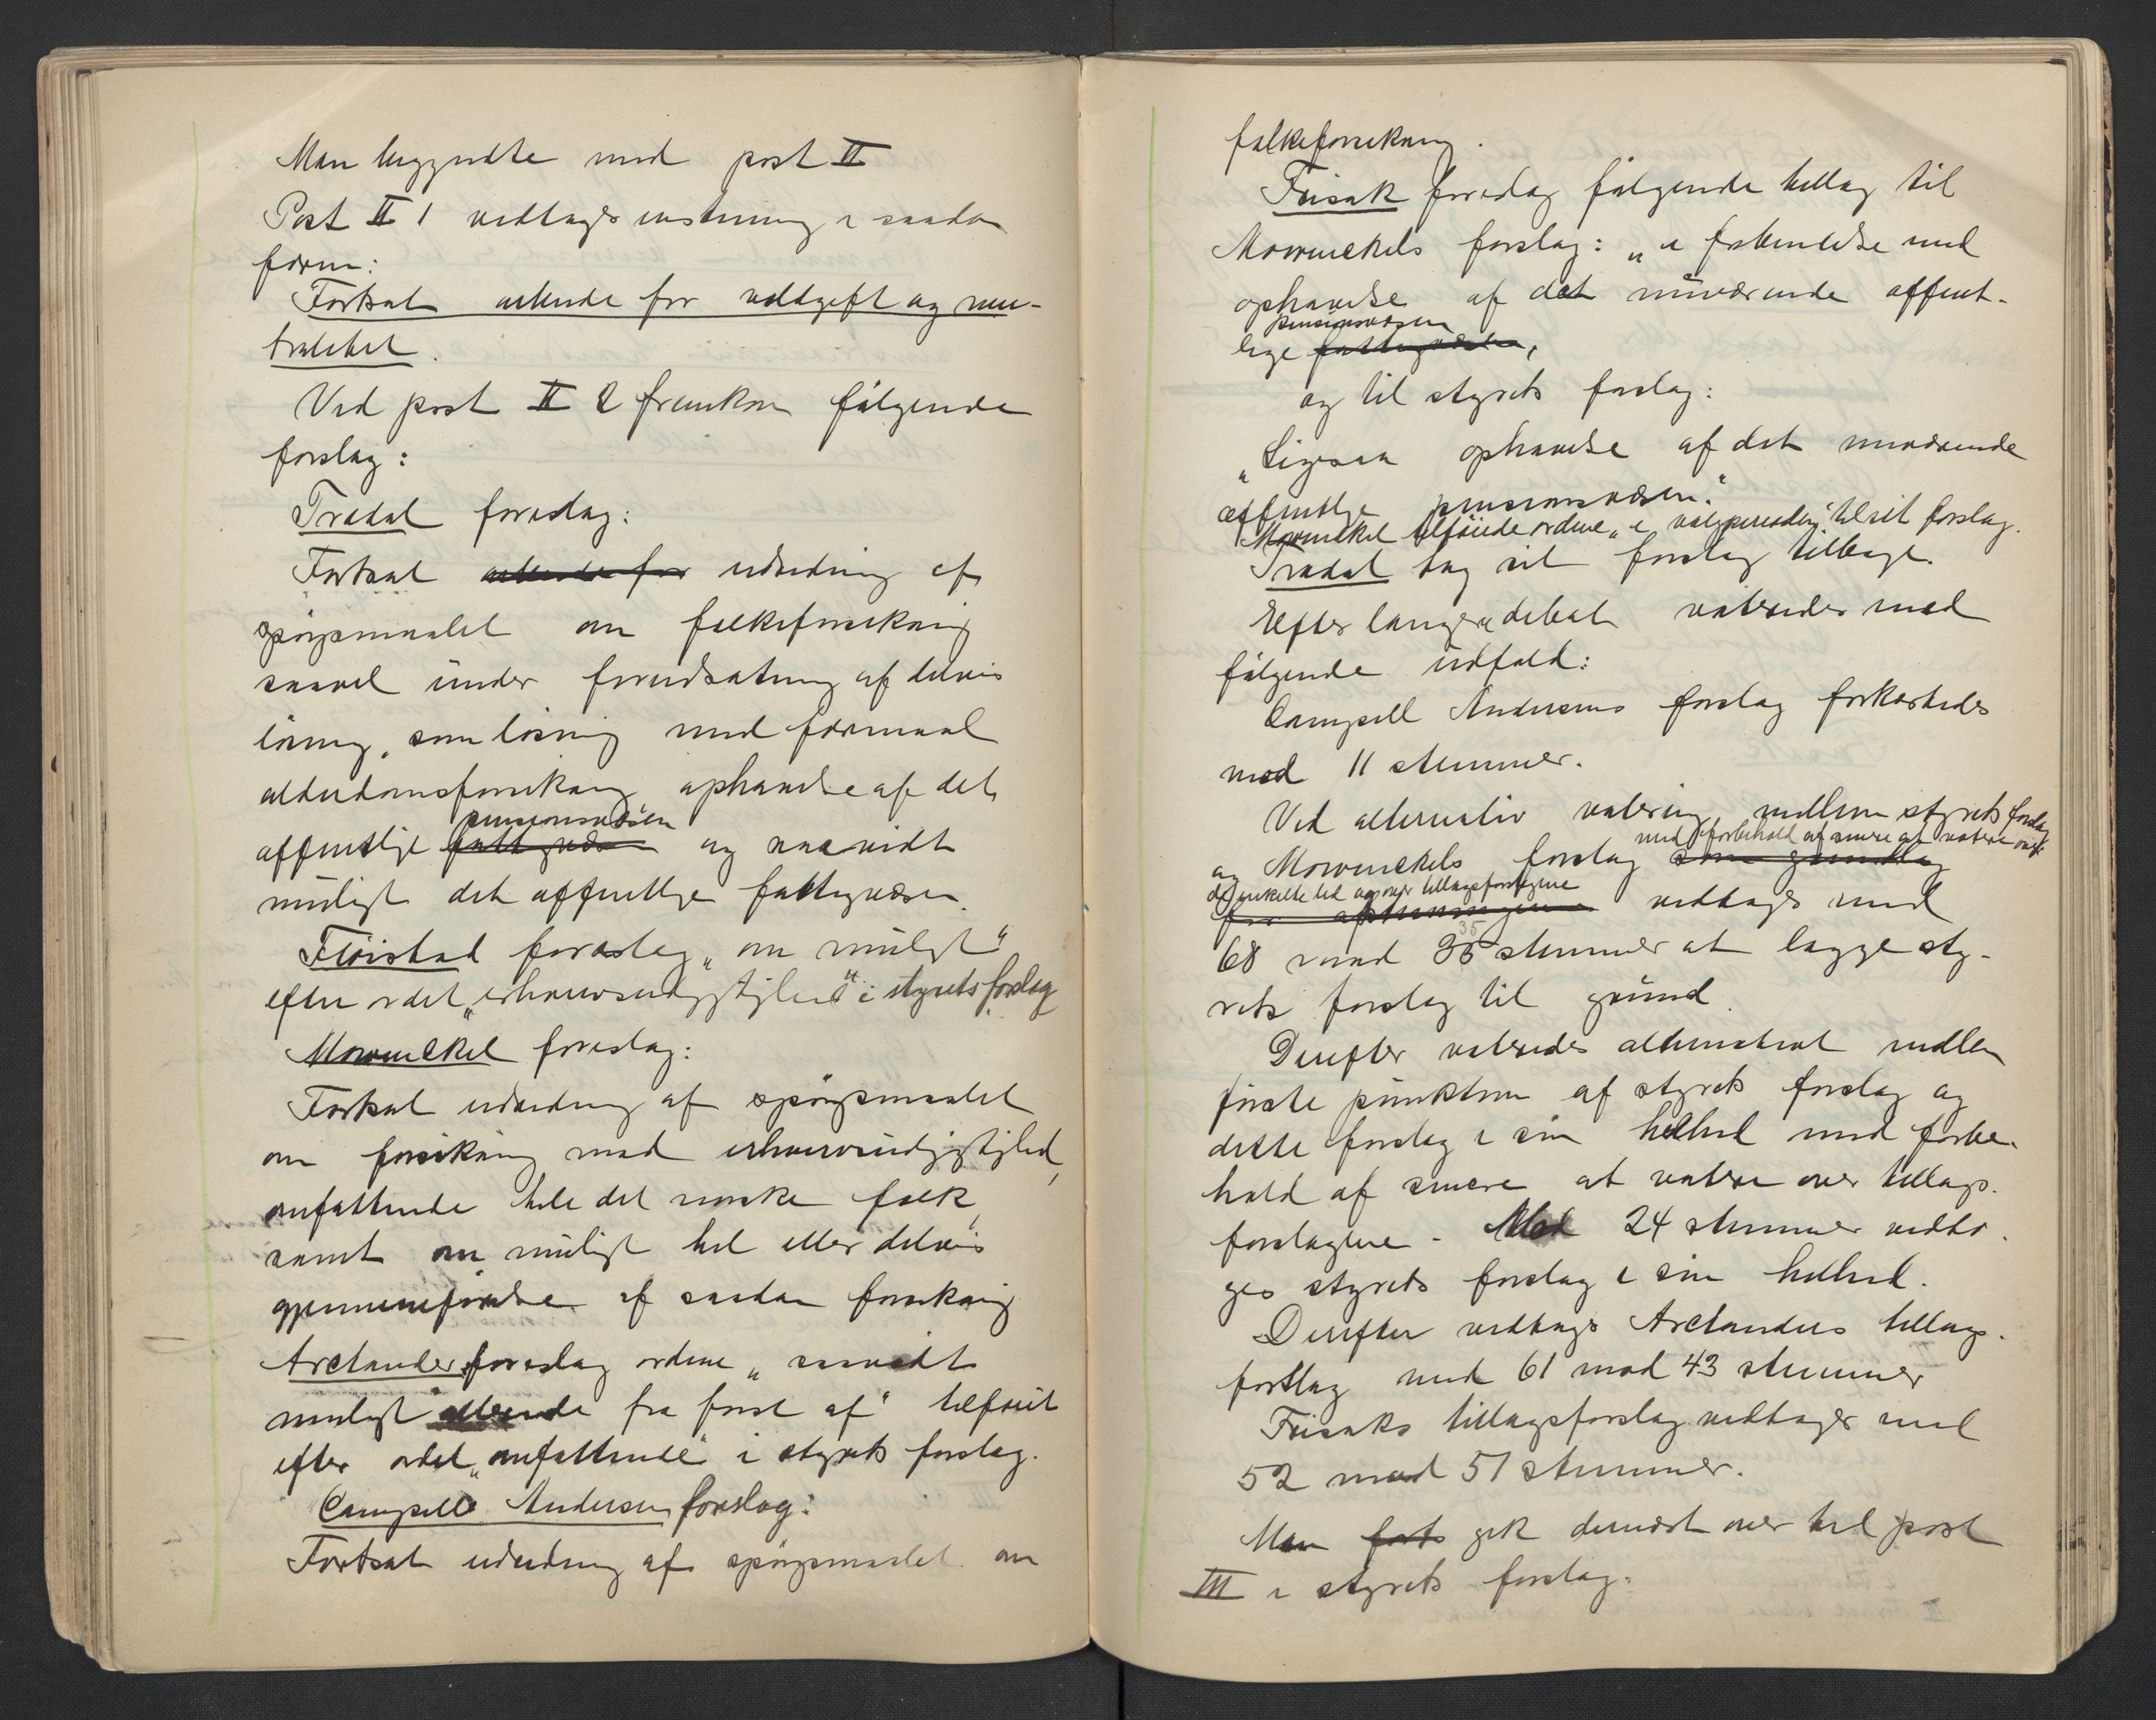 Man begyndte med post II
Post II 1 vedtages enstemmig i saadan
form:
Fortsat arbeide for voldgift og neu-
tralitet.
Ved post II 2 fremkom følgende
forslag:
Tradal foreslog:
Fortsat arbeide for udredning af
spørgsmaalet om folkeforsikring
saavel under forudsætning af delvis
løsning, som løsning med formaal
alderdomsforsikring ophævelse af det
pensionsvæsen
offentlige fattigvæsen og saavidt
muligt det offentlige fattigvæsen.
Fløistad foreslog „om muligt"
efter ordet „erhvervsudygtighed" i styrets forslag
Mowinckel foreslog:
Fortsat udredning af spørgsmaalet
om forsikring mod erhvervsudygtighed,
omfattende hele det norske folk,
samt om muligt hel eller delvis
gjennemførelse af saadan forsikring
Arctander foreslog ordene „saavidt
muligt allerede fra først af" tilføiet
efter ordet „omfattende" i styrets forslag.
Campell Andersen foreslog:
Fortsat udredning af spørgsmaalet om
folkeforsikring.
Friisak foreslog følgende tillæg til
Mowinckels forslag: „i forbindelse med
ophævelse af det nuværende offent-
pensionsvæsen
lige fattigvæsen,
og til styrets forslag:
„Ligesaa ophævelse af det nuværende
offentlige pensionsvæsen."
Mowinckel tilføiede ordene „i valgperioden" til sit forslag.
Tradal tog sit forslag tilbage.
Efter længere debat voteredes med
følgende udfald:
Campell Andersens forslag forkastedes
mod 11 stemmer.
Ved alternativ votering mellem styrets forslag
med forbehold af senere at votere over
og Mowinckels forslag som grundlag
de enkelte led og over tillægsforslagene
for afstemningen vedtages med
35
68 mod 35 stemmer at lægge sty-
rets forslag til grund.
Derefter voteredes alternativt mellem
første punktum af styrets forslag og
dette forslag i sin helhed med forbe-
hold af senere at votere over tillægs-
forslagene. Mod 24 stemmer vedto-
ges styrets forslag i sin helhed.
Derefter vedtoges Arctanders tillægs-
forslag med 61 mod 43 stemmer
Friisaks tillægsforslag vedtages med
52 mod 51 stemmer.
Man forts gik dernæst over til post
III i styrets forslag.